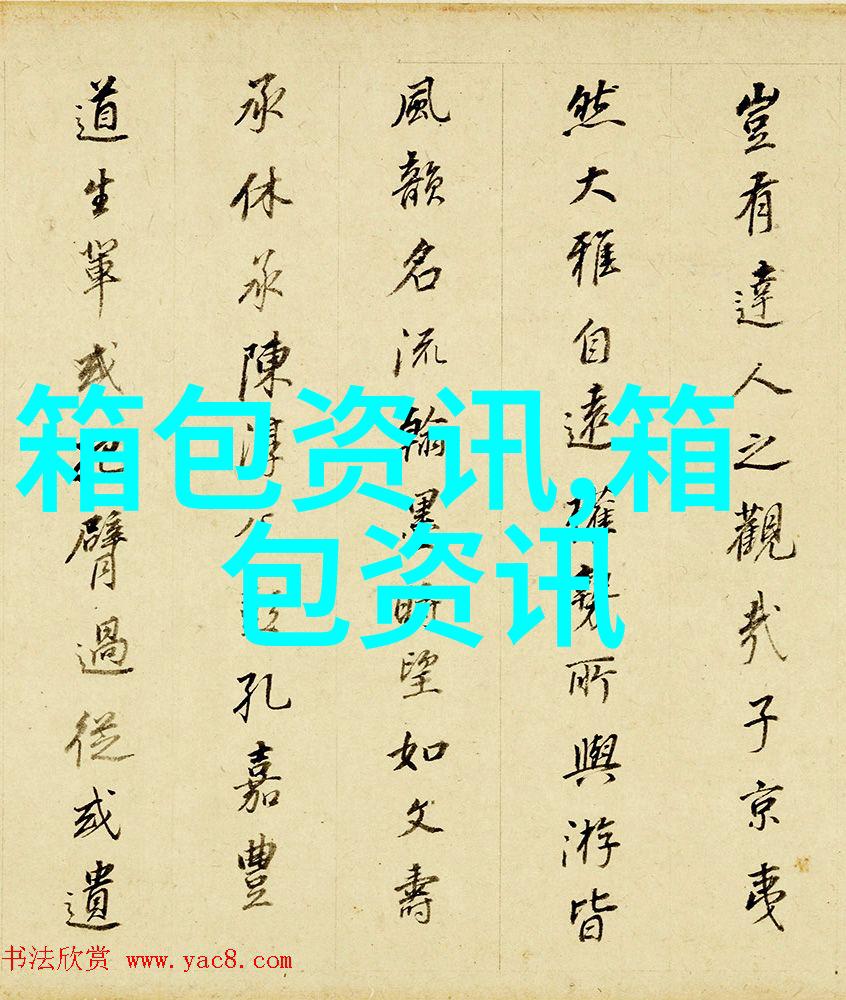 豈有達人之觀哉子京夷
然大雅自遠所與游皆
風韻名流翰墨時望如文壽
承休承陳淳孔嘉豐
道生輩或臂過從或遺
箱包资讯,箱
包资讯
书法欣赏 www.yac8.com